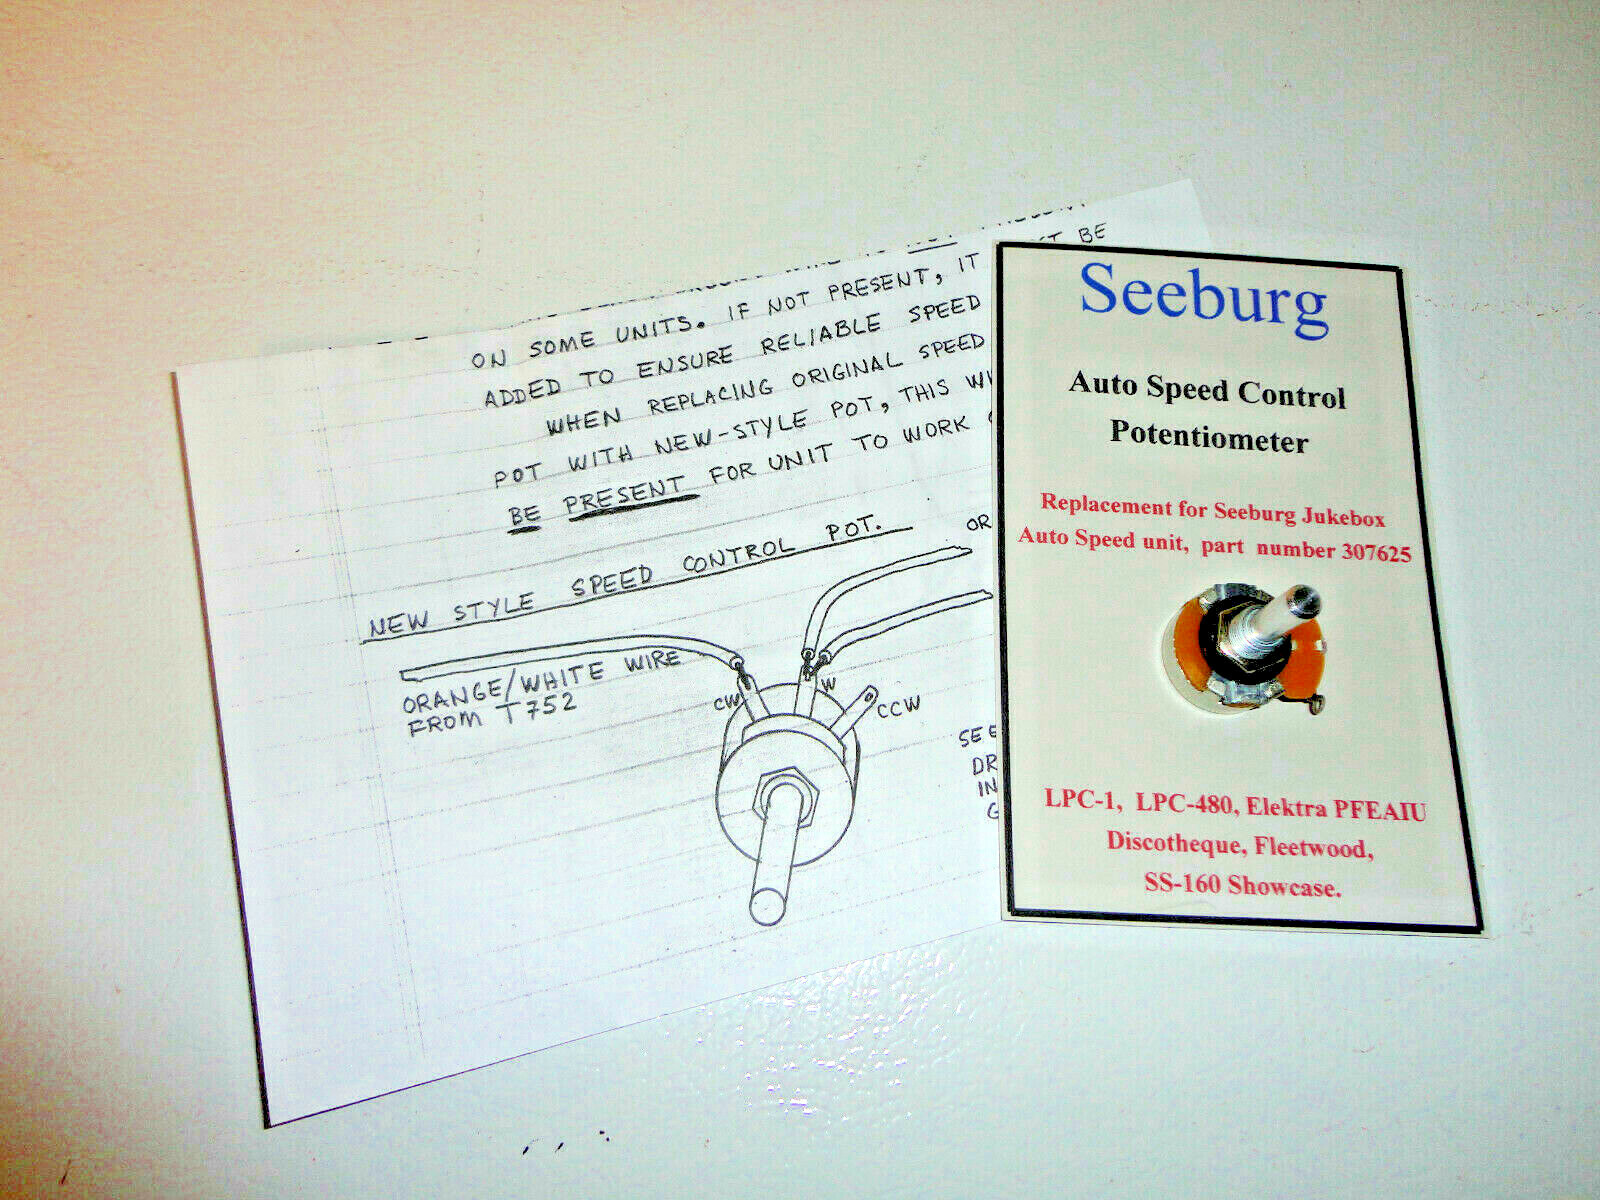 BE
ON SOME UNITS. IF NOT PRESENT, IT
ADDED TO ENSURE RELIABLE SPEED
WHEN REPLACING ORIGINAL SPEED
POT WITH NEW-STYLE POT, THIS
BE PRESENT FOR UNIT TO WORK
NEW STYLE SPEED CONTROL POT.
OR
ORANGE/WHITE WIRE
FROM T752
CW
W
CCW
SEE
DR
IN
Seeburg
Auto Speed Control
Potentiometer
Replacement for Seeburg Jukebox
Auto Speed unit, part number 307625
LPC-1, LPC-480, Elektra PFEAIU
Discotheque, Fleetwood,
SS-160 Showcase.